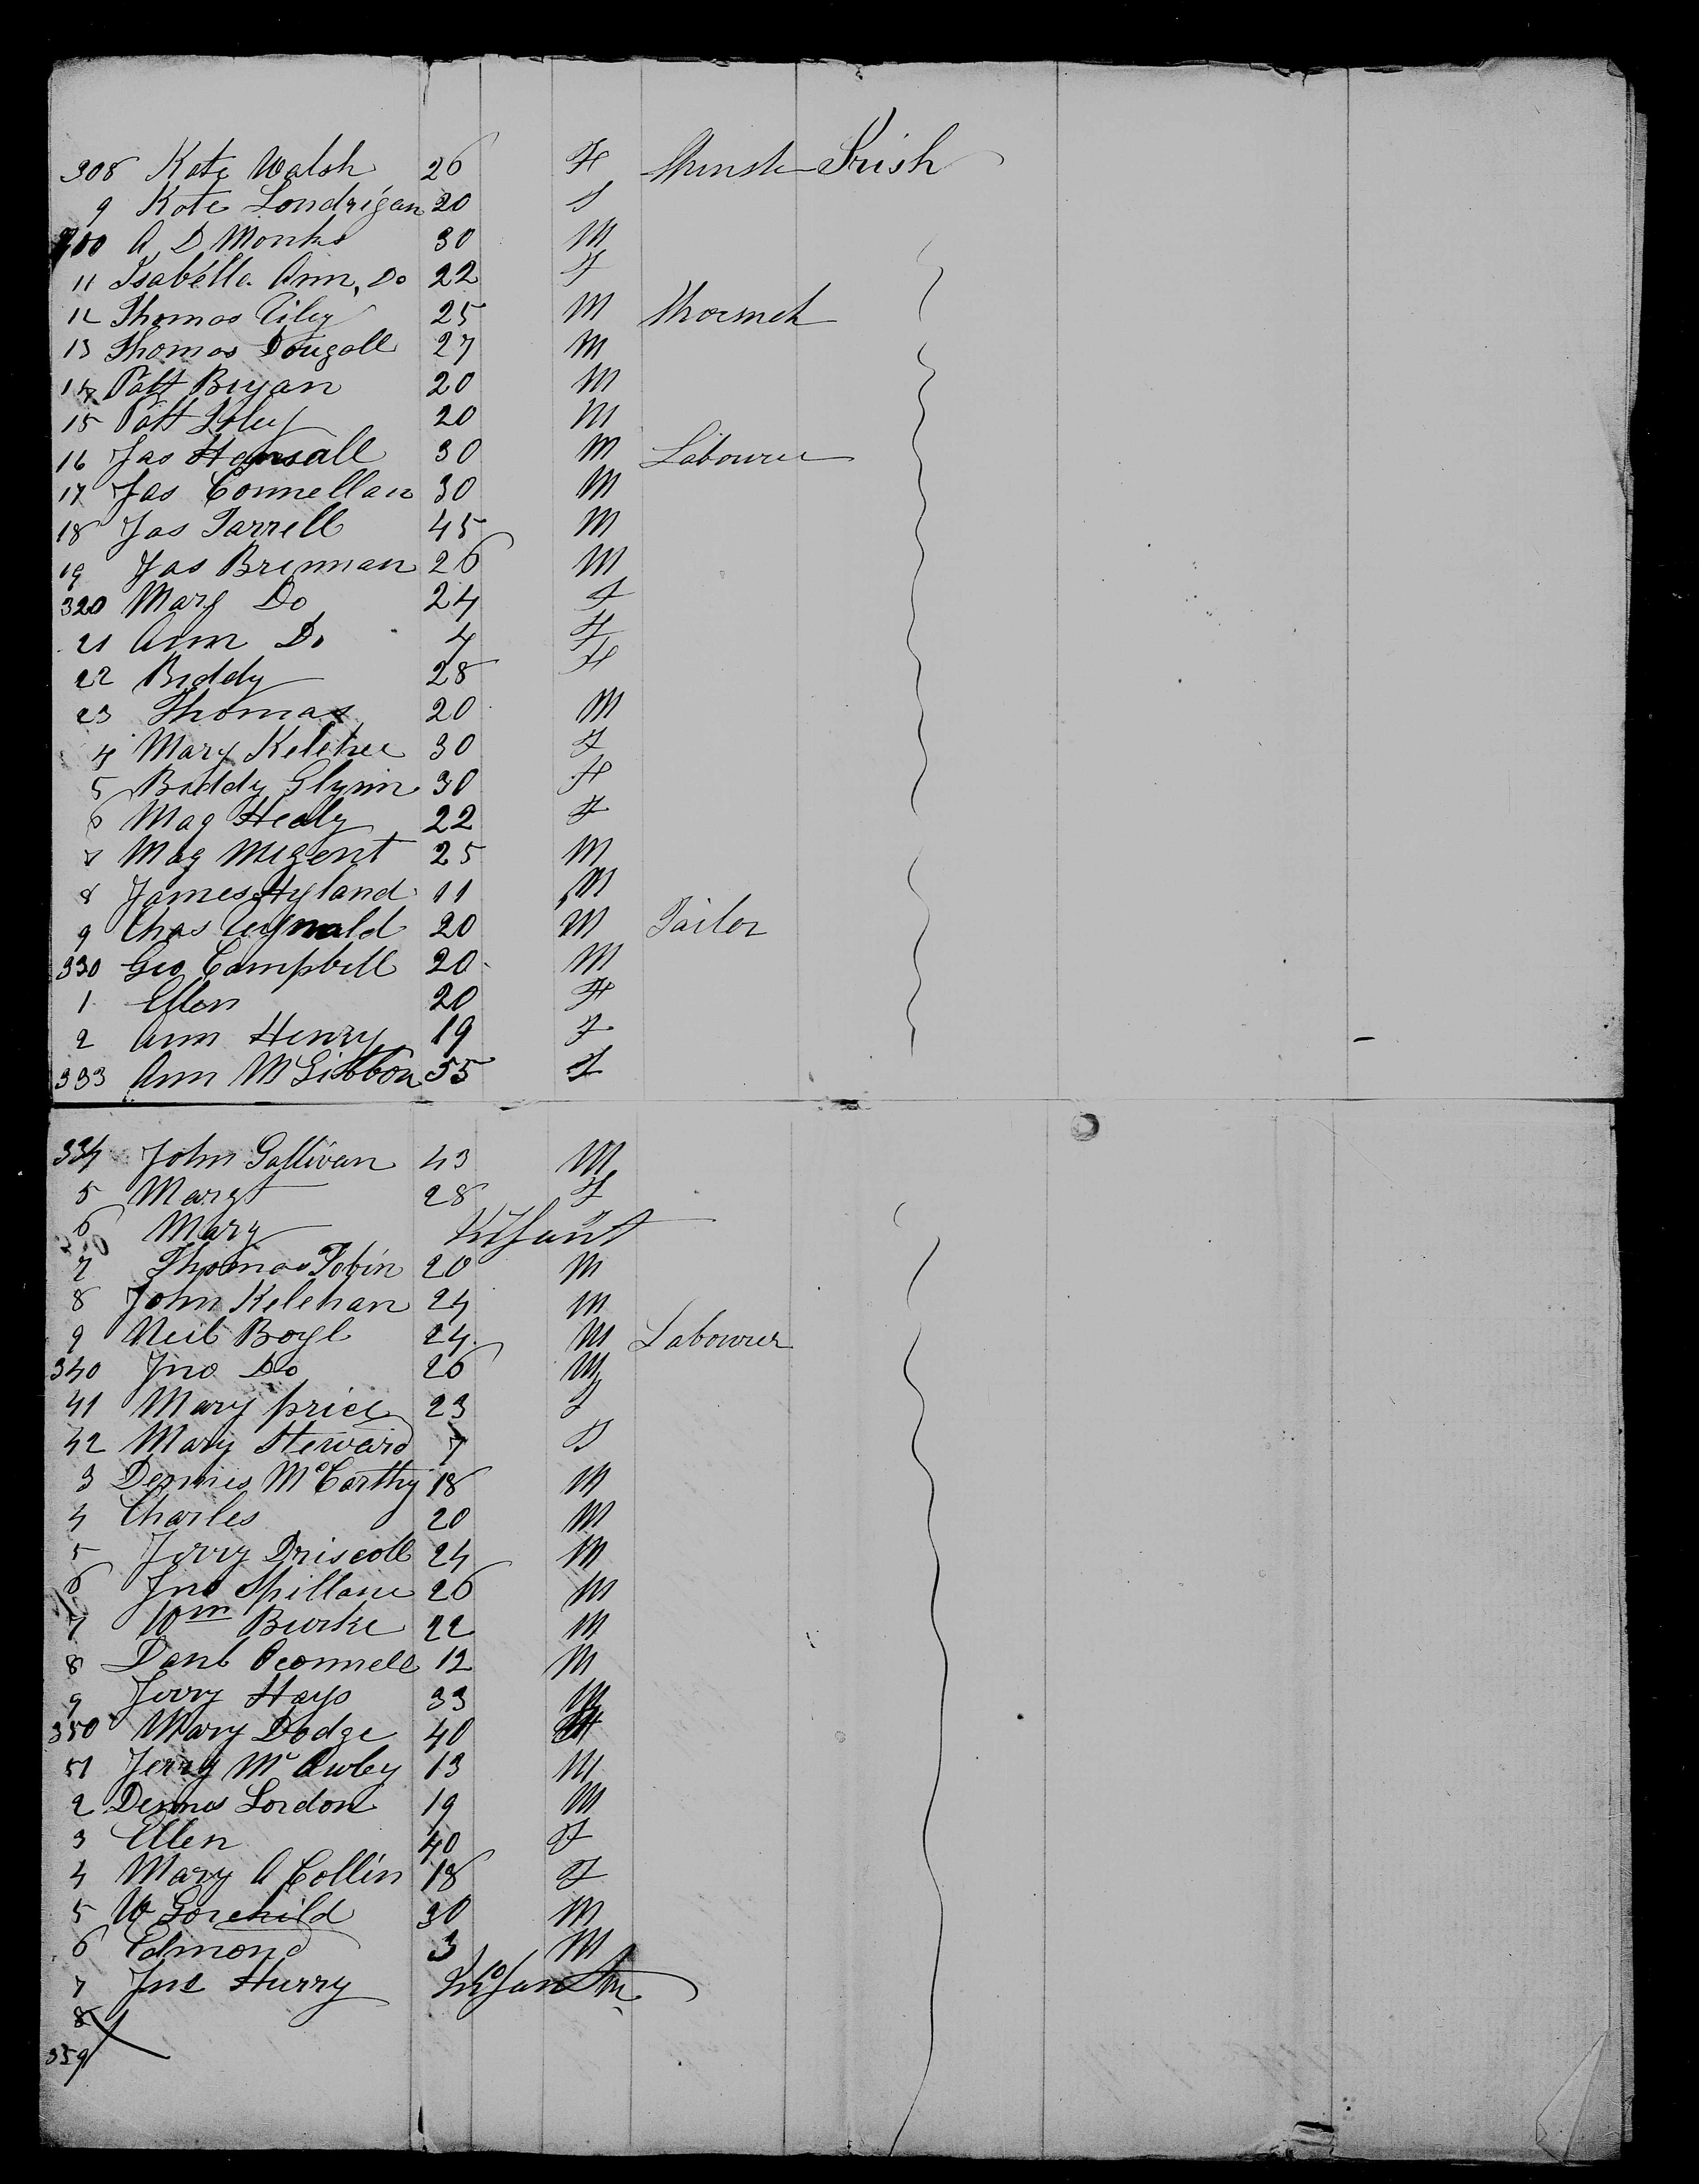 308 Kate Walsh 26 F Irish
9 Kate Londrigan 20 F
300 A D Monks 30 M
11 Isabella Ann, Do 22 F
12 Thomas 25 M
13 Thomas Dougall 27 M
14 Patt Bryan 20 M
15 Patt 20 M
16 Jas 30 M Labourer
17 Jas Connellan 30 M
18 Jas Farrell 45 M
19 Jas Brennan 26 M
320 Mary Do 24 F
21 Ann Do 4 F
22 Biddy 28 F
23 Thomas 20 M
4 Mary Keleher 30 F
5 Biddy Glynn 30 F
6 Mag Healy 22 F
7 Mag 25 M
8 James Hyland 11 M
9 Chas 20 M Tailor
330 Geo Campbell 20 M
1 Ellen 20 F
2 Ann Henry 19 F
333 Ann McGibbon 55 F
334 John Sullivan 43 M
5 Margt 28 F
6 Mary Infant
7 Thomas Tobin 20 M
8 John Kelehan 24 M
9 Neil Boyl 24 M Labourer
340 Jno Do 26 M
41 Mary price 23 F
42 Mary Steward 7 F
3 Dennis McCarthy 18 M
4 Charles 20 M
5 Jerry Driscoll 24 M
6 Jno Spillane 26 M
7 Wm Burke 22 M
8 Danl Oconnell 12 M
9 Jerry Hays 33 M
350 Mary Dodge 40
51 Jerry Mc 13 M
2 Dennis Lordon 19 M
3 Ellen 40 F
4 Mary A Collin 18 F
5 W 30 M
6 Edmond 3 M
7 Jno Hurry Infant M
8
359